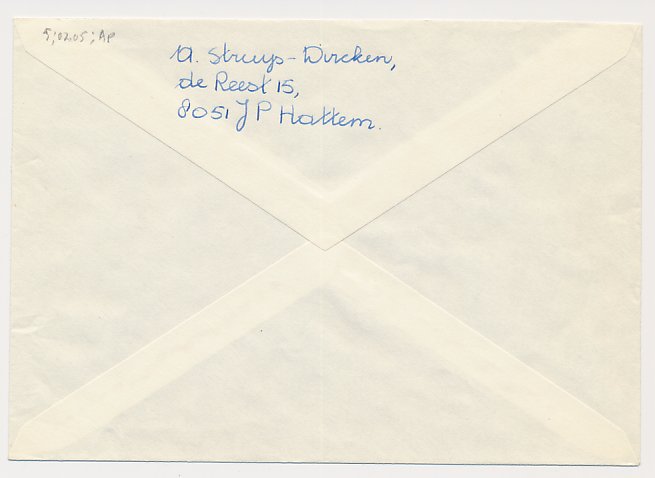 5;0205; AP
A. Struys-Dircken,
de Reest 15,
8051 JP Hattem.